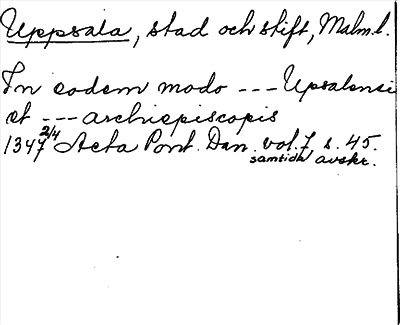 Uppsala, stad och stift, Malm.l.
In eodem modo --- Upsalensi
et --- archiepiscopis
1347 2/4 Acta Pont. Dan. vol. 7, s. 45.
samtida avskr.